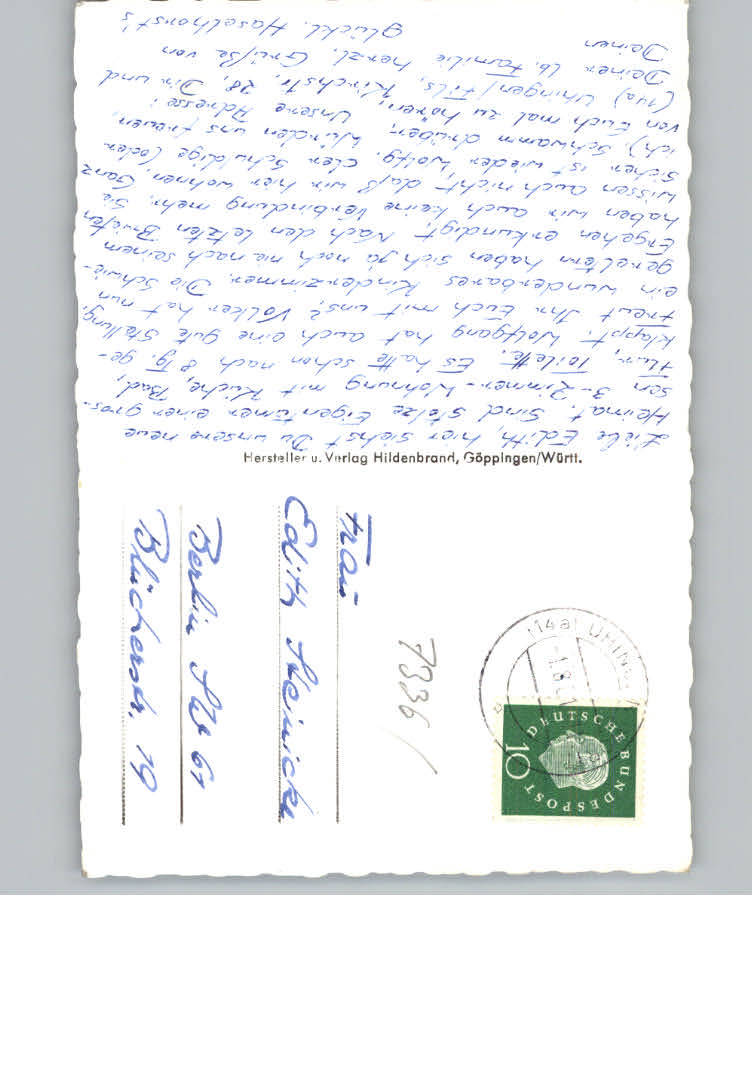 Liebe Edith, hier siehst Du unsere neue
Heimat. Sind stolze Eigentümer einer gros-
sen 3-Zimmer-Wohnung mit Küche, Bad,
Flur, Toilette. Es hatte schon nach 8 Tg. ge-
klappt. Wolfgang hat auch eine gute Stellung,
freut Ihr Euch mit uns? Volker hat nun
ein wunderbares Kinderzimmer. Die Schwie-
gereltern haben sich ja noch nie nach seinem
Ergehen erkundigt. Nach den letzten Briefen
haben wir auch keine Verbindung mehr. Sie
wissen auch nicht, daß wir hier wohnen. Ganz
sicher ist wieder Wolfg. der Schuldige (oder
ich). Schwamm drüber. Würden uns freuen,
von Euch mal zu hören, Unsere Adresse:
(14a) Uhingen/Fils, Kirchstr. 28, Dir und
Deiner lb. Familie herzl. Grüße von
Deinen
glückl. Haselhorst's
Hersteller u. Verlag Hildenbrand, Göppingen/Württ.
Frau
Edith Steinicke
Berlin SW 61
Blücherstr. 19
7336/
(14a) UHINGEN
-1.8.
DEUTSCHE BUNDESPOST
10